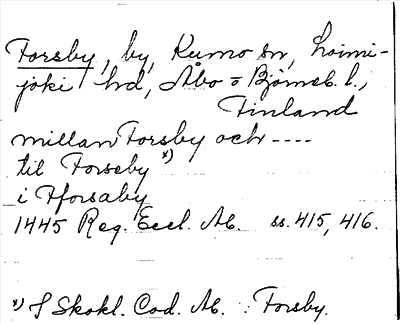 Forsby, by, Kumo sn, Loimi-
joki hd, Åbo o Björneb. l.,
Finland
millan Forsby och ----
til Forseby x)
i fforsaby
1445 Reg. Eccl. Ab. ss. 415, 416.
x) I Skokl. Cod. Ab. : Forsby.